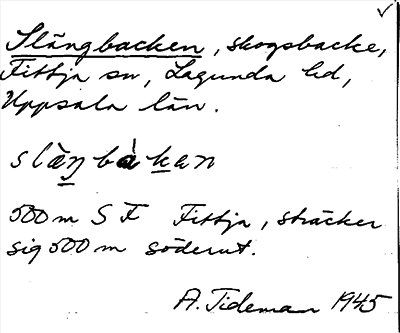 Slängbacken, skogsbacke,
Fittja sn, Lagunda hd,
Uppsala län.
slàŋbàkan
500 m S F Fittja, sträcker
sig 500 m söderut.
A. Tideman 1945